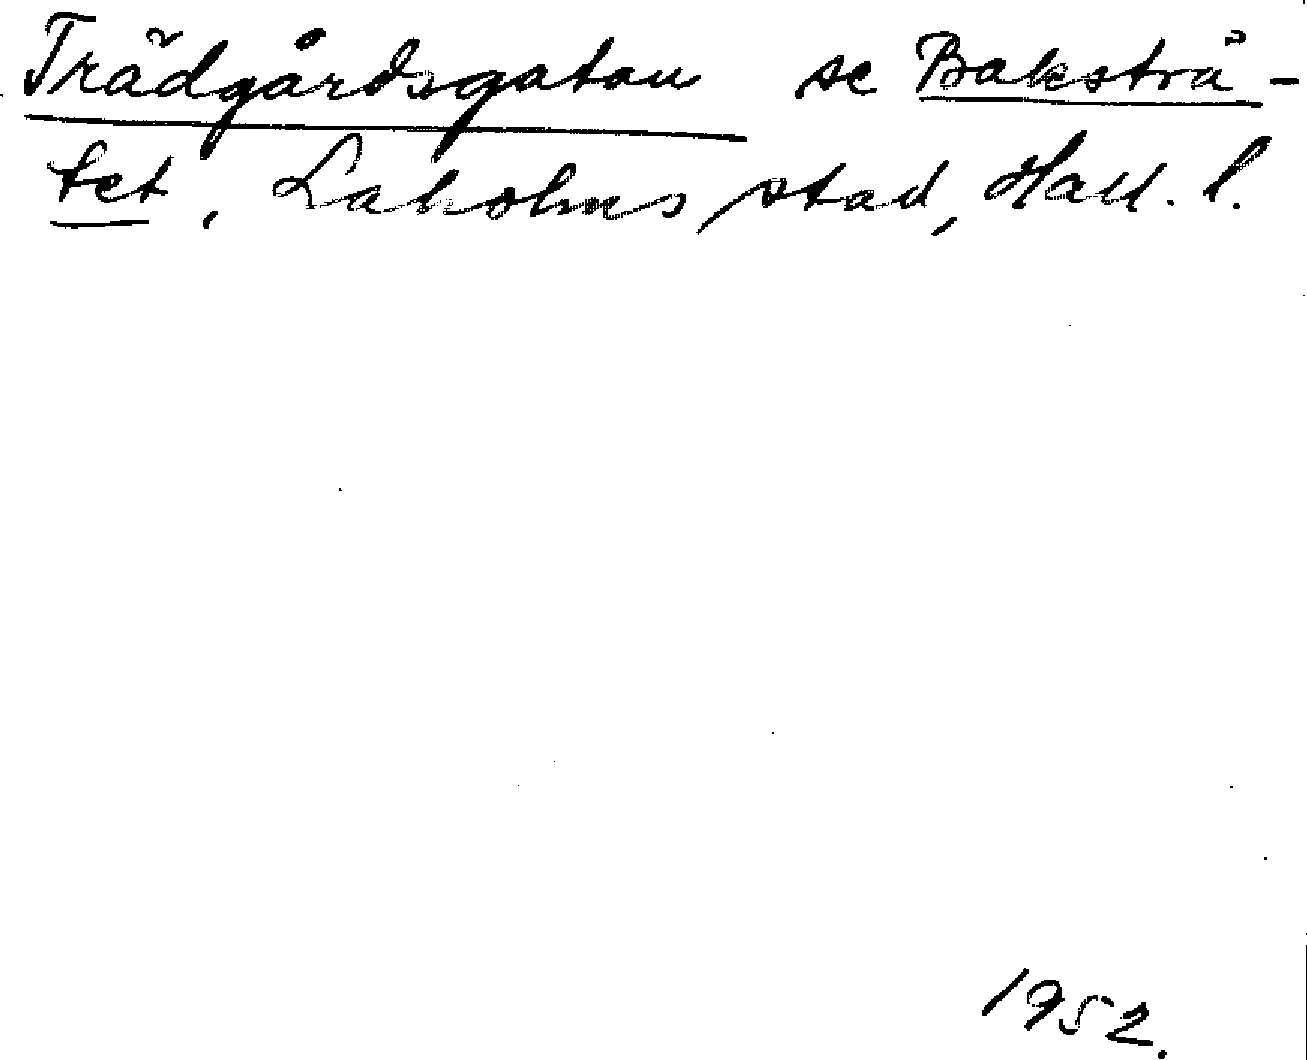 Trädgårdsgatan se Bakstrå-
tet, Laholms stad, Hall. l.
1952.